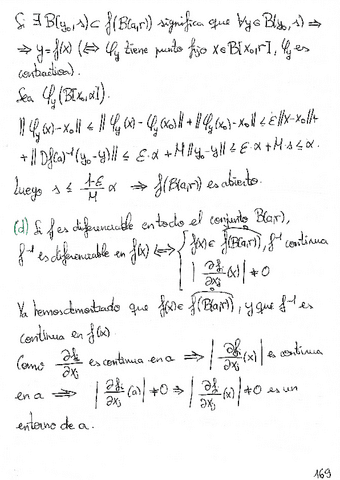 Si ∃ B(y₀, s) ⊂ f(B(a,r)) significa que ∀y ∈ B(y₀, s) ⇒
⇒ y = f(x) (⇔ φ_y tiene punto fijo x ∈ B[x₀, r], φ_y es
contractiva).
Sea φ_y(B[x₀, α]).
‖φ_y(x) - x₀‖ ≤ ‖φ_y(x) - φ_y(x₀)‖ + ‖φ_y(x₀) - x₀‖ ≤ ε‖x - x₀‖ +
+ ‖Df(a)⁻¹(y₀ - y)‖ ≤ ε·α + M‖y₀ - y‖ ≤ ε·α + M·s ≤ α.
Luego s ≤ (1-ε)/M α ⇒ f(B(a,r)) es abierto.
(d) Si f es diferenciable en todo el conjunto B(a,r),
f⁻¹ es diferenciable en f(x) ⇔ { f(x) ∈ f(B(a,r)), f⁻¹ continua
|∂fᵢ/∂xⱼ (x)| ≠ 0
Ya hemos demostrado que f(x) ∈ f(B(a,r)), y que f⁻¹ es
continua en f(x)
Como ∂fᵢ/∂xⱼ es continua en a ⇒ |∂fᵢ/∂xⱼ (x)| es continua
en a ⇒ |∂fᵢ/∂xⱼ (a)| ≠ 0 ⇒ |∂fᵢ/∂xⱼ (x)| ≠ 0 en un
entorno de a.
169